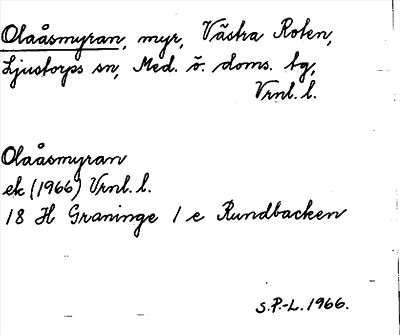 Olaåsmyran, myr, Västra Roten,
Ljustorps sn, Med. ö. doms. tg,
Vrnl. l.
Olaåsmyran
ek (1966) Vrnl. l.
18 H Graninge 1 e Rundbacken
S.P.-L. 1966.